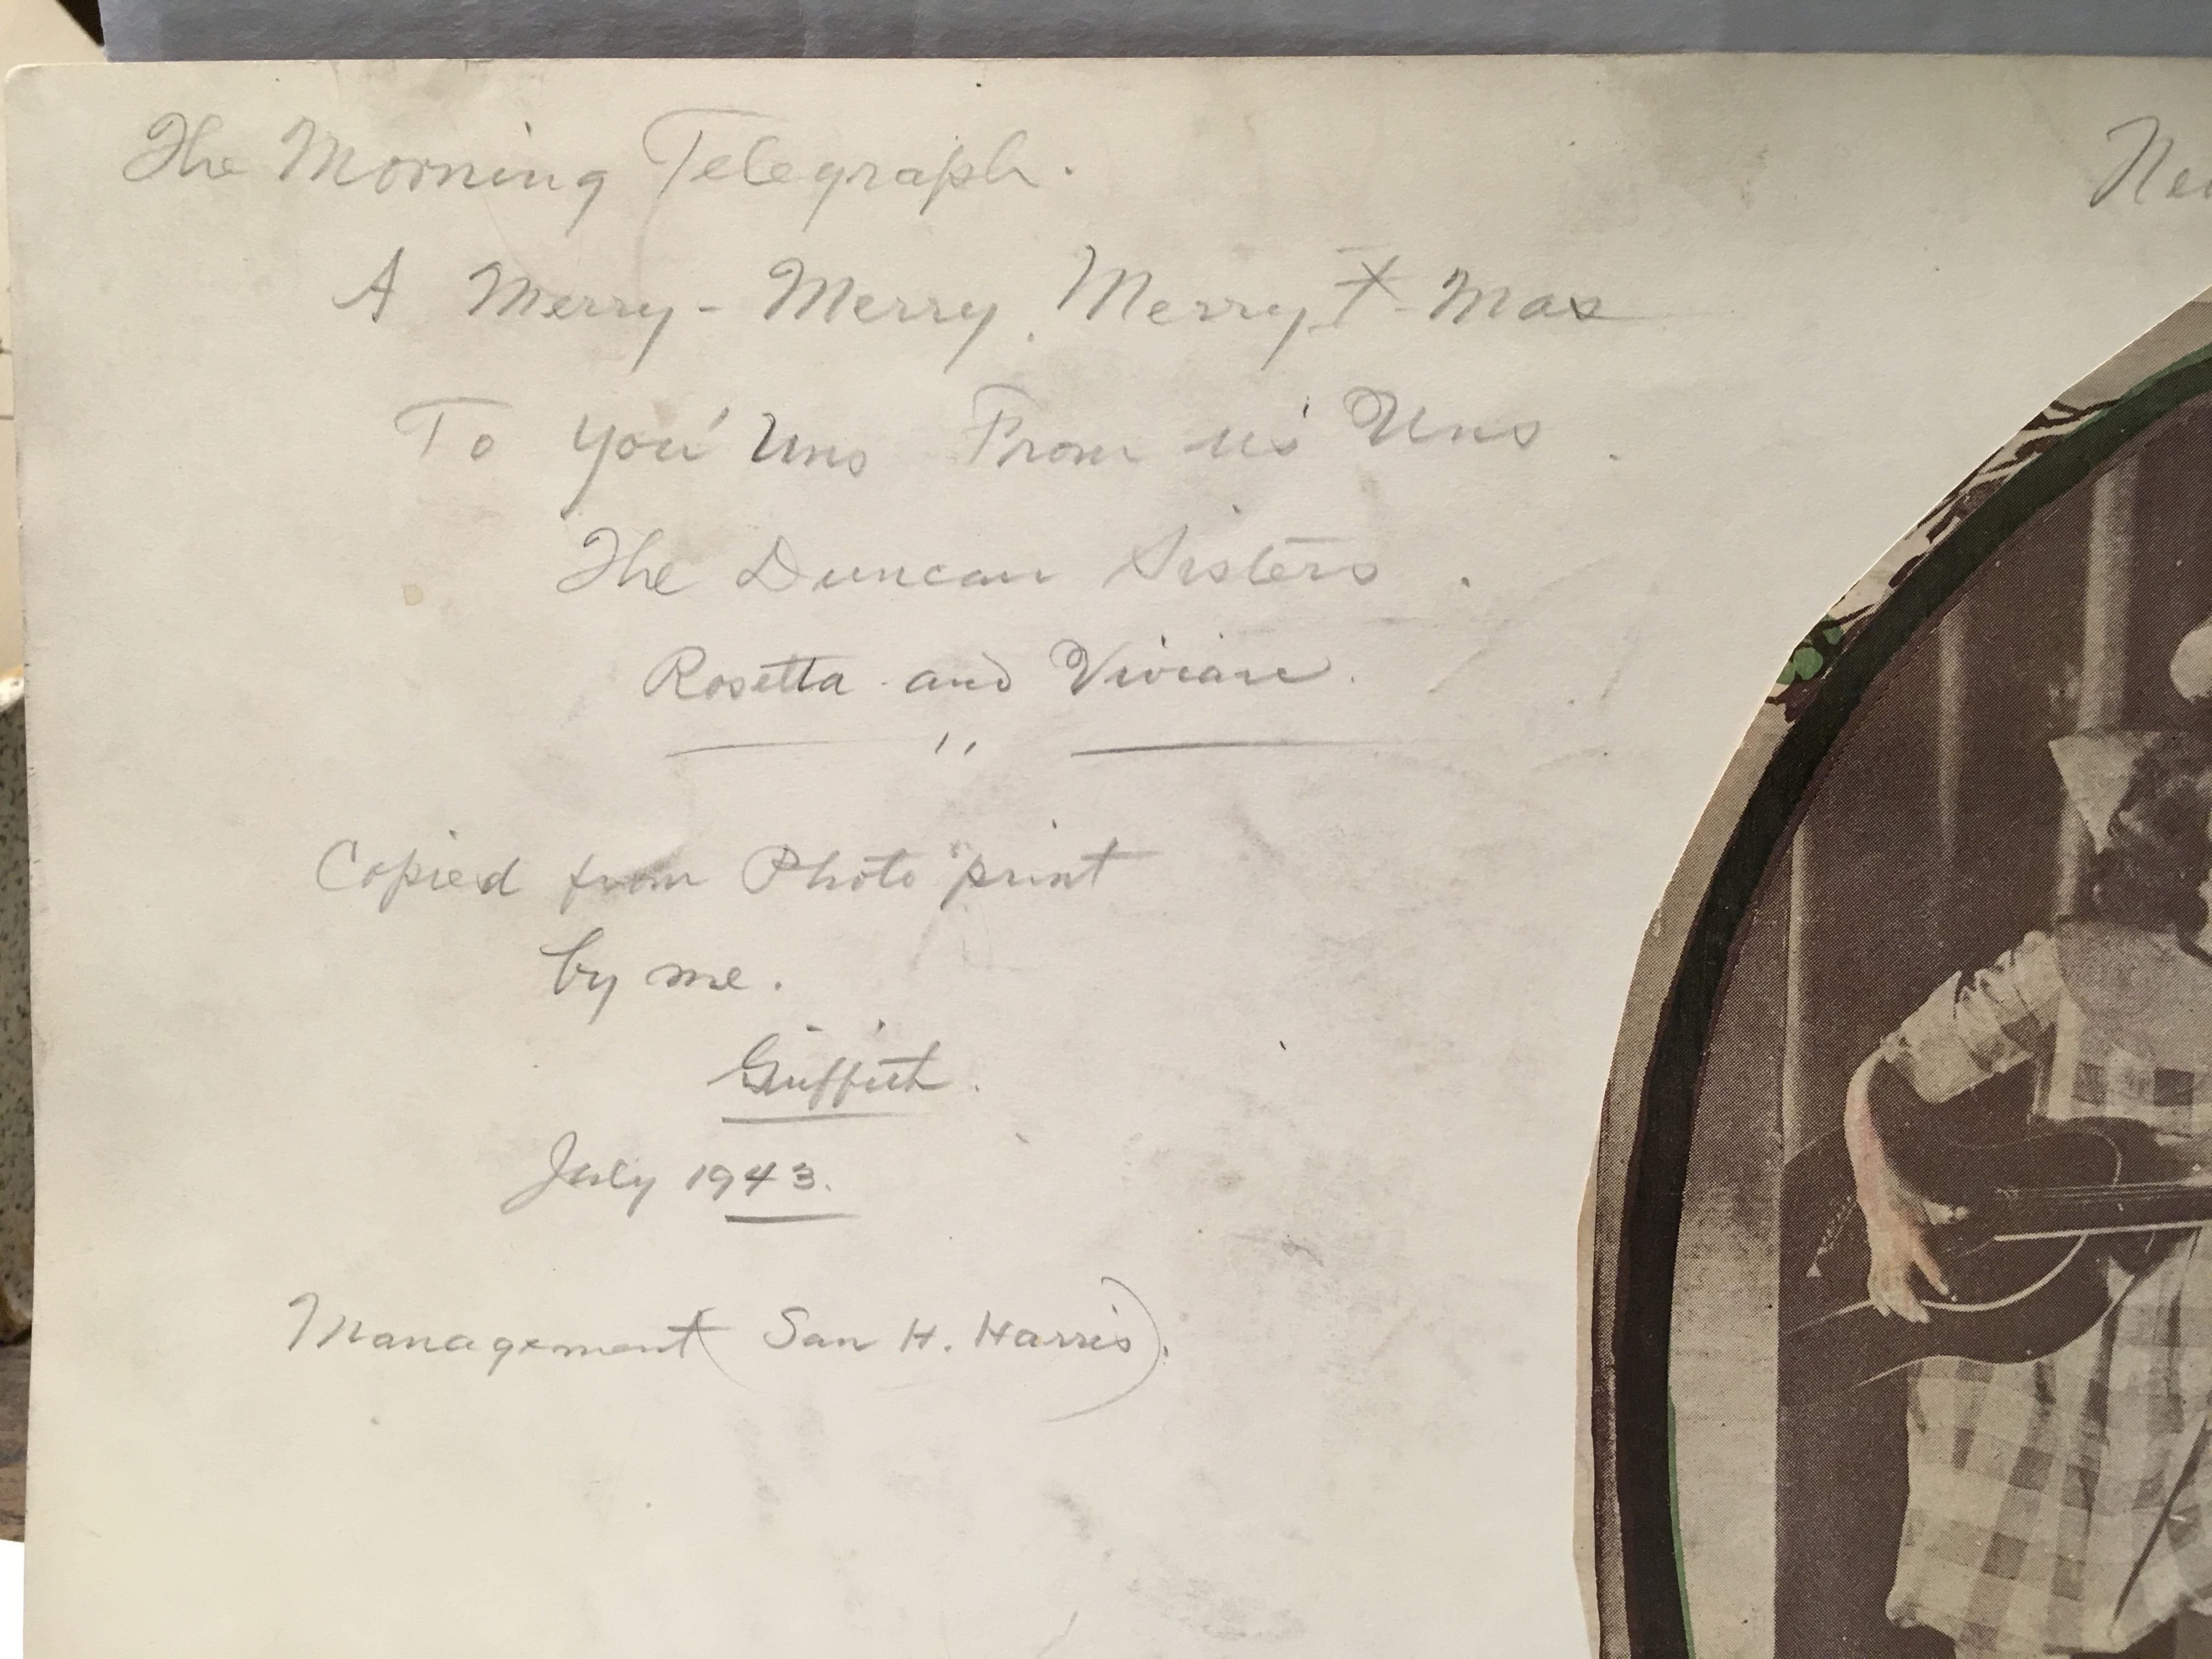 The Morning Telegraph.
A Merry - Merry, Merry X-Mas
To You' Uns From us' Uns.
The Duncan Sisters.
Rosetta and Vivian.
"
Copied from Photo print
by me.
Griffith.
July 1943.
Management (San H. Harris).